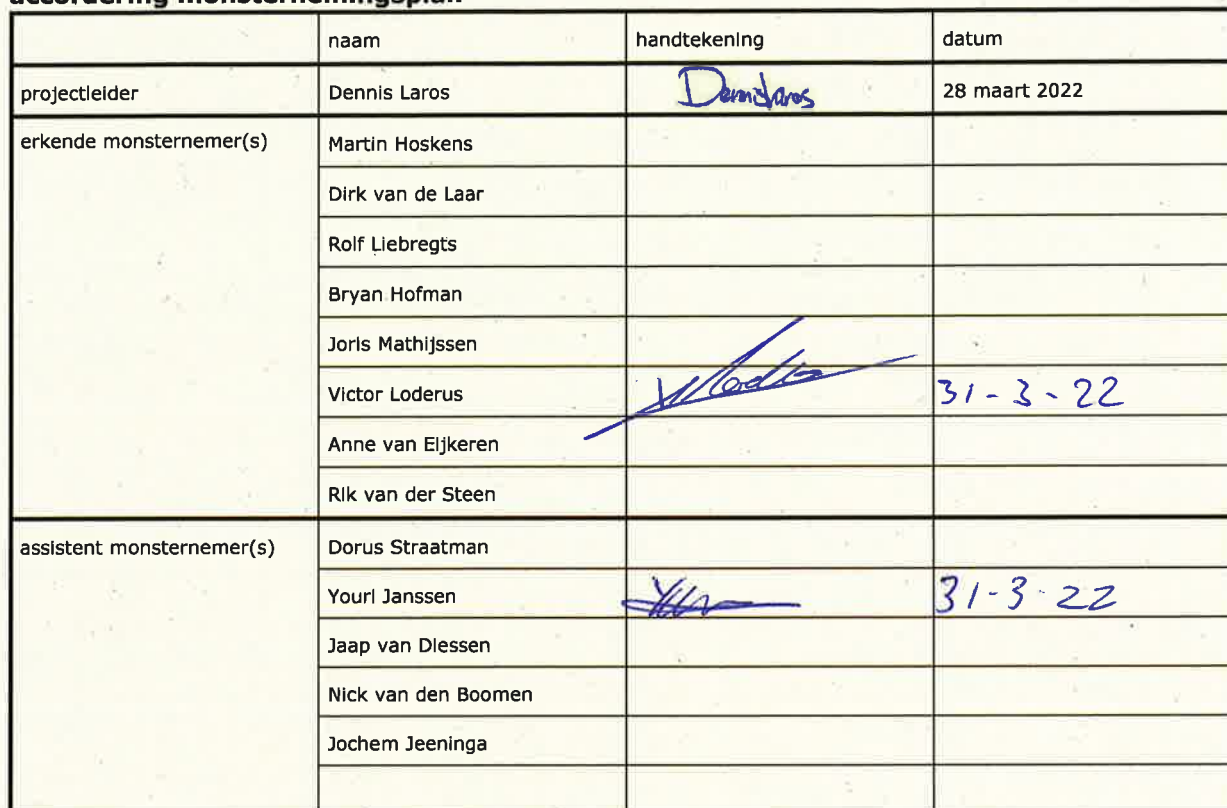 accordering monsternemingsplan
naam handtekening datum
projectleider Dennis Laros Dennis Laros 28 maart 2022
erkende monsternemer(s) Martin Hoskens
Dirk van de Laar
Rolf Liebregts
Bryan Hofman
Joris Mathijssen
Victor Loderus 31-3-22
Anne van Eijkeren
Rik van der Steen
assistent monsternemer(s) Dorus Straatman
Youri Janssen 31-3-22
Jaap van Diessen
Nick van den Boomen
Jochem Jeeninga